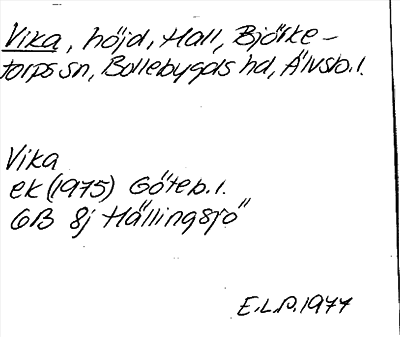 Vika, höjd, Hall, Björke-
torps sn, Bollebygds hd, Älvsb. l.
Vika
ek (1975) Göteb. l.
6B 8j Hällingsjö
E.L.P. 1977